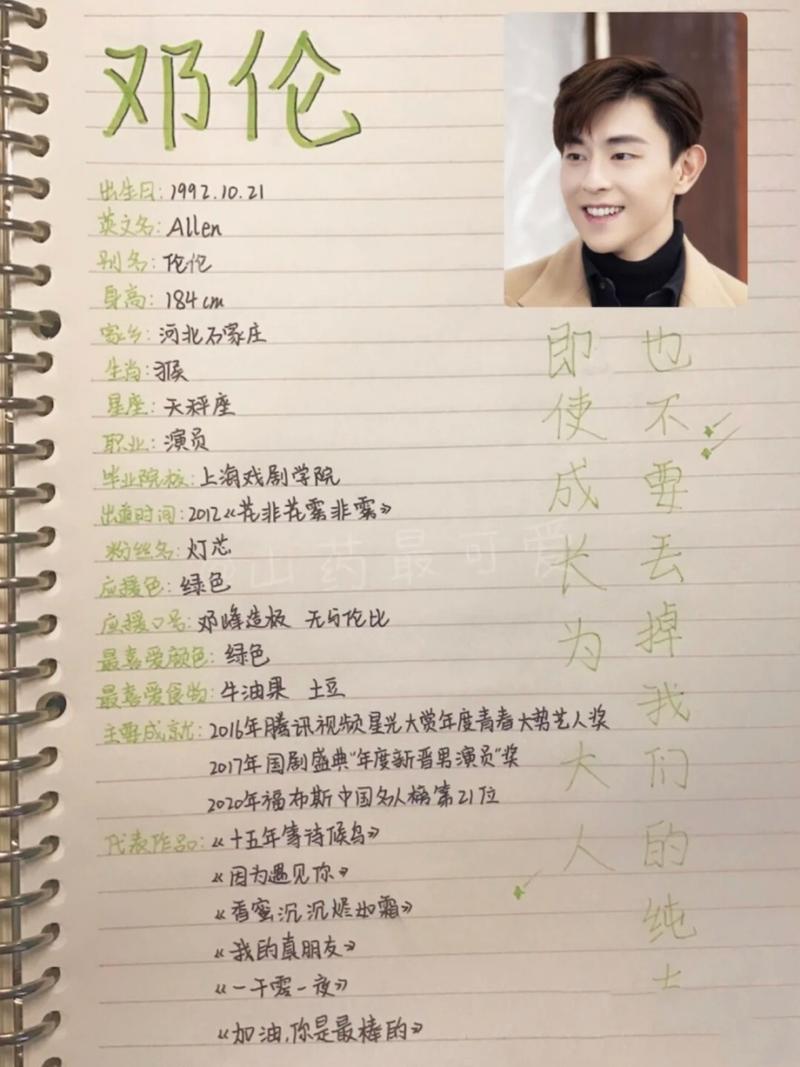 邓伦
出生日:1992.10.21
英文名:Allen
别名:伦伦
身高:184cm
家乡:河北石家庄
生肖:猴
星座:天秤座
职业:演员
毕业院校:上海戏剧学院
出道时间:2012《花非花雾非雾》
粉丝名:灯芯
应援色:绿色
应援口号:邓峰造极 无与伦比
最喜爱颜色:绿色
最喜爱食物:牛油果 土豆
主要成就:2016年腾讯视频星光大赏年度青春大势艺人奖
2017年国剧盛典"年度新晋男演员"奖
2020年福布斯中国名人榜第21位
代表作品:《十五年等待候鸟》
《因为遇见你》
《香蜜沉沉烬如霜》
《我的真朋友》
《一千零一夜》
《加油,你是最棒的》
即使成长为大人
也不要丢掉我们的纯
山药最可爱